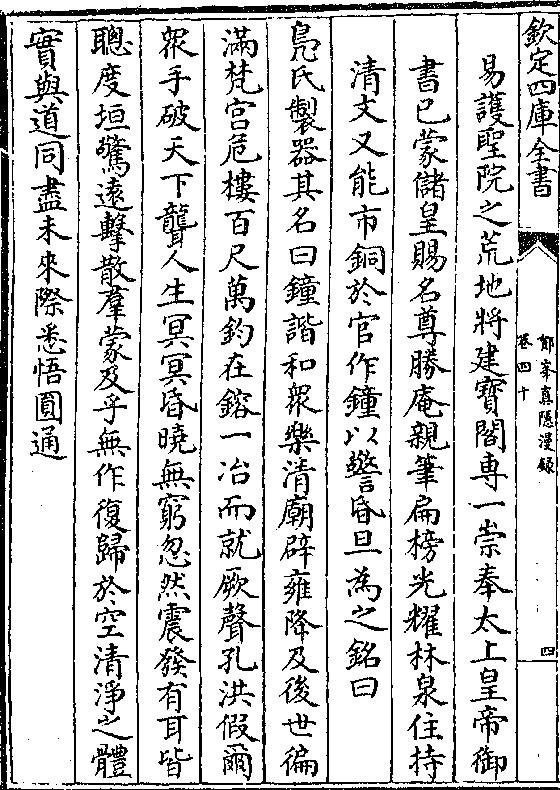 欽定四庫全書
鄮峯真隱漫錄
卷四十
四
易護聖院之荒地將建寳閣専一崇奉太上皇帝御
書已蒙儲皇賜名尊勝庵親筆扁榜光耀林泉住持
清文又能市銅於官作鐘以警昏旦為之銘曰
鳬氏製器其名曰鐘諧和衆樂清廟辟雍降及後世徧
滿梵宫危樓百尺萬鈞在鎔一冶而就厥聲孔洪假爾
衆手破天下聾人生冥冥昏曉無窮忽然震發有耳皆
聰度垣驚逺擊散羣蒙及乎無作復歸於空清淨之體
實與道同盡未來際悉悟圓通